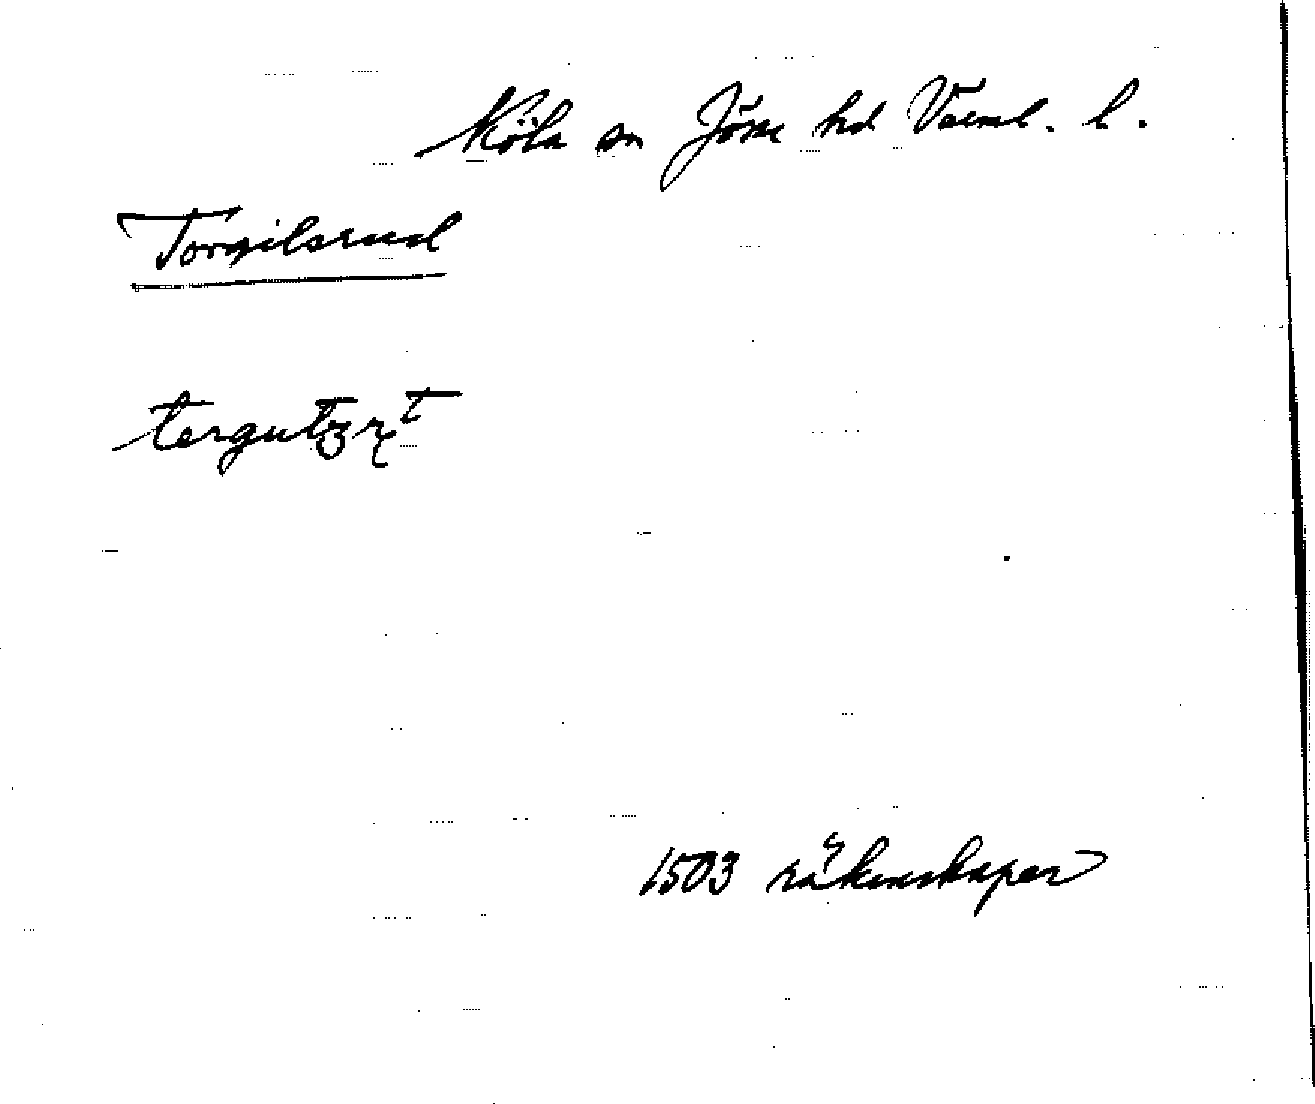 Köla sn Jösse hd Värml. l.
Torgilsrud
1503 räkenskaper